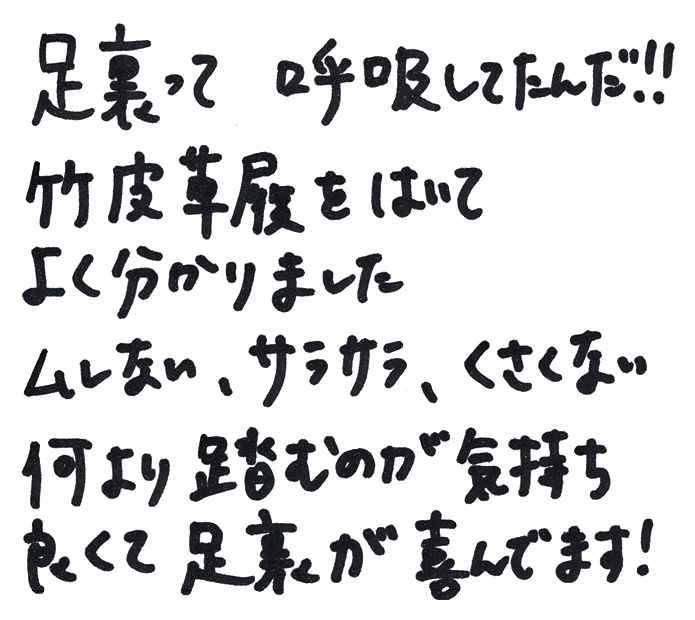 足裏って 呼吸してたんだ!!
竹皮草履をはいて
よく分かりました
ムレない、サラサラ、くさくない
何より踏むのが気持ち
良くて足裏が喜んでます!